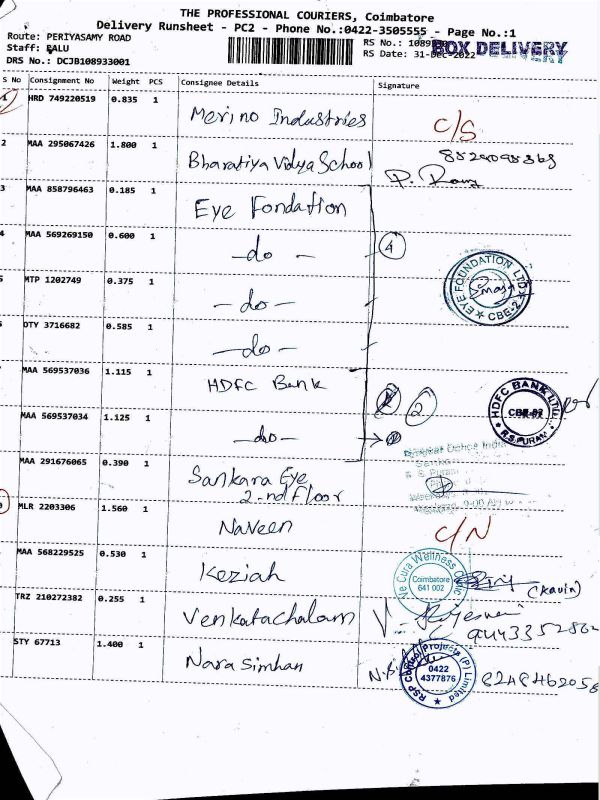 THE PROFESSIONAL COURIERS, Coimbatore
Delivery Runsheet - PC2 - Phone No.:0422-3505555 - Page No.:1
Route: PERIYASAMY ROAD
Staff: BALU
DRS No.: DCJB108933001
RS No.:
RS Date: 31-Dec-2022
BOX DELIVERY
S No Consignment No Weight PCS Consignee Details Signature
1 HRD 749220519 0.835 1 Merino Industries C/S
2 MAA 295067426 1.800 1 Bharatiya Vidya School
3 MAA 858796463 0.185 1 Eye Fondation
4 MAA 569269150 0.600 1 -do- 4
EYE FOUNDATION LTD CBE-2
MTP 1202749 0.375 1 -do-
DTY 3716682 0.585 1 -do-
MAA 569537036 1.115 1 HDFC Bank 2
HDFC BANK LTD. CBE-02 R.S.PURAM
MAA 569537034 1.125 1 -do-
MAA 291676065 0.390 1 Sankara Eye
2-nd Floor
MLR 2203306 1.560 1 Naveen C/N
MAA 568229525 0.530 1 Keziah
Coimbatore
641 002
(Kavin)
TRZ 210272382 0.255 1 Venkatachalam
STY 67713 1.400 1 Nara Simhan
0422
4377876